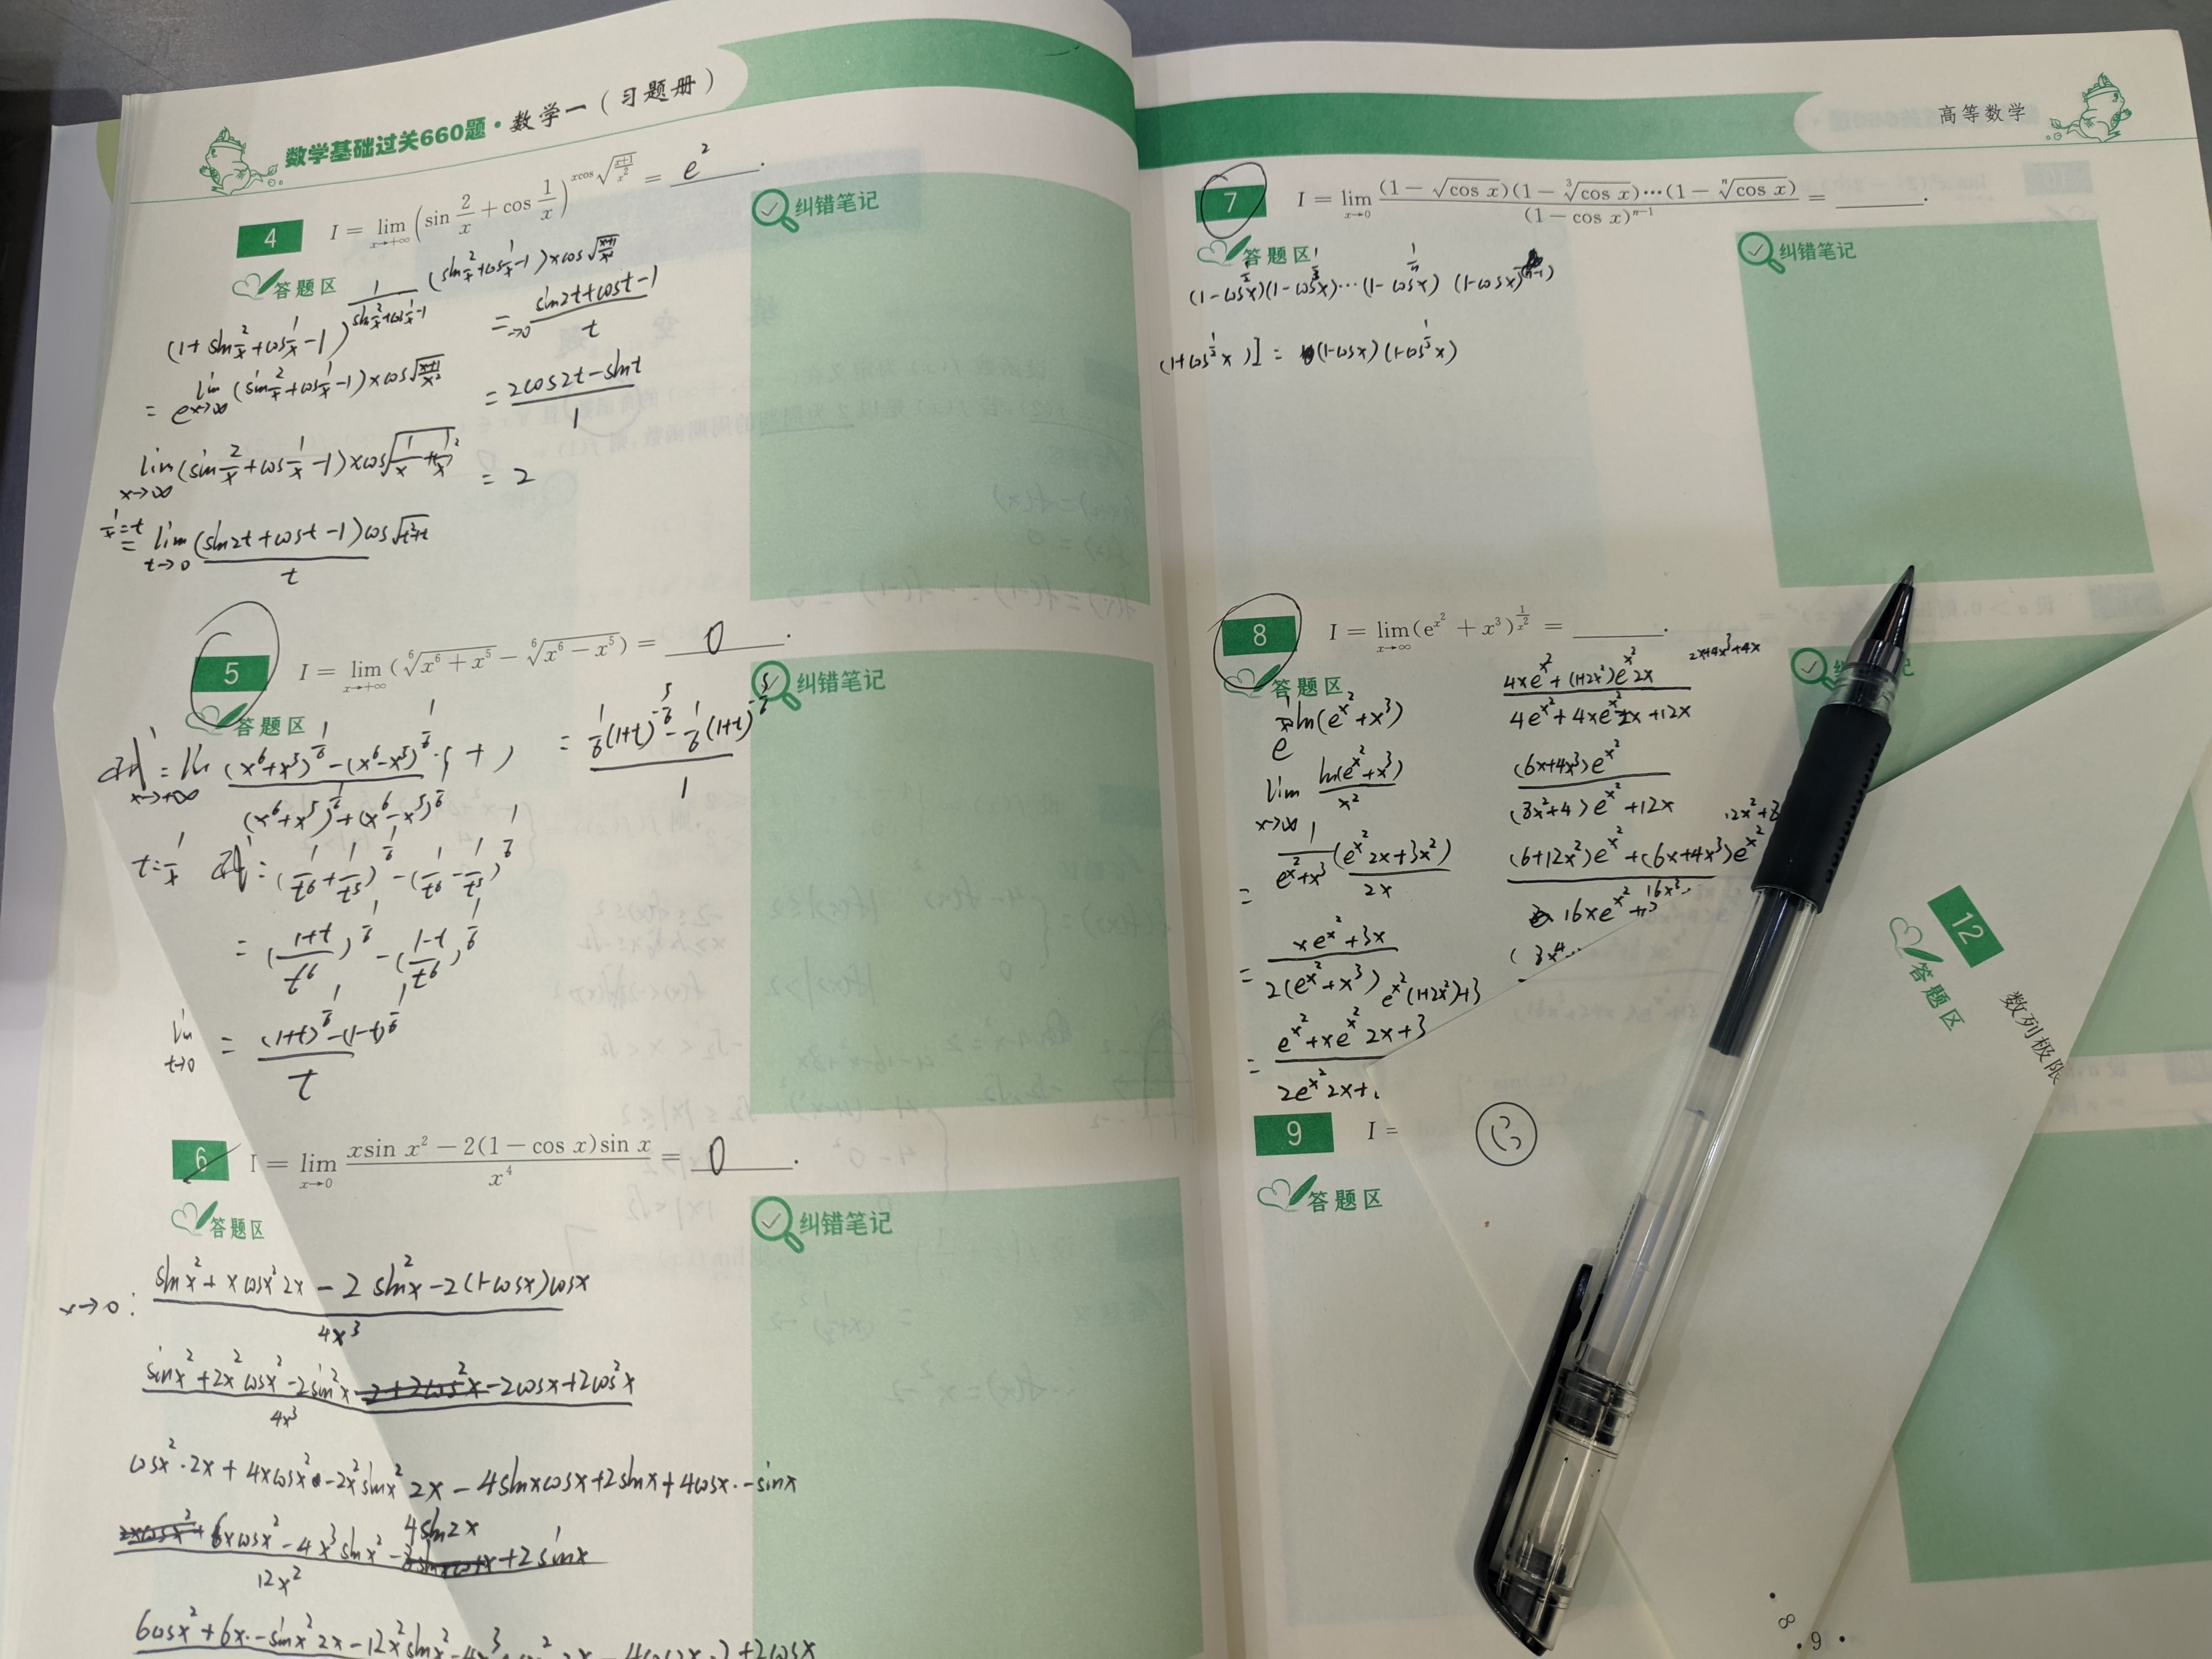 数学基础过关660题·数学一（习题册）
4 I = lim x→+∞ (sin 2/x + cos 1/x)^{xcos√((x+1)/x²)} = e².
纠错笔记
答题区
(1+sin 2/x+cos 1/x-1)^{1/(sin 2/x+cos 1/x-1)·(sin 2/x+cos 1/x-1)xcos√((x+1)/x²)}
= e^{lim x→∞ (sin 2/x+cos 1/x-1)xcos√((x+1)/x²)}
lim x→∞ (sin 2/x+cos 1/x-1)xcos√(1/x+1/x²)
1/x=t = lim t→0 (sin2t+cost-1)cos√(t²+t) / t
= →0 (sin2t+cost-1)/t
= (2cos2t-sint)/1
= 2
5 I = lim x→+∞ (⁶√(x⁶+x⁵) - ⁶√(x⁶-x⁵)) = 0.
纠错笔记
答题区
t=1/x 原式=(1/t⁶+1/t⁵)^{1/6}-(1/t⁶-1/t⁵)^{1/6}
=((1+t)/t⁶)^{1/6}-((1-t)/t⁶)^{1/6}
lim t→0 = ((1+t)^{1/6}-(1-t)^{1/6})/t
= (1/6(1+t)^{-5/6}-1/6(1+t)^{-5/6})/1
6 I = lim x→0 (xsin x²-2(1-cos x)sin x)/x⁴ = 0.
纠错笔记
答题区
x→0: (sinx²+xcosx²2x-2sin²x-2(1-cosx)cosx)/4x³
(sinx²+2x²cosx²-2sin²x-2cosx+2cos²x)/4x³
cosx²·2x+4xcosx²-2x²sinx²2x-4sinxcosx+2sinx+4cosx·-sinx
(6xcosx²-4x³sinx²-4sin2x+2sinx)/12x²
6cosx²+6x·-sinx²2x-12x²sinx²
高等数学
7 I = lim x→0 ((1-√cos x)(1-³√cos x)···(1-ⁿ√cos x))/(1-cos x)^{n-1} = .
答题区
纠错笔记
(1-cos^{1/2}x)(1-cos^{1/3}x)···(1-cos^{1/n}x) (1-cosx)^{-(n-1)}
(1+cos^{1/2}x)] = (1-cosx)(1-cos^{1/3}x)
8 I = lim x→∞ (e^{x²}+x³)^{1/x²} = .
答题区
2x+4x³+4x
ln(e^{x²}+x³)
e
lim x→∞ ln(e^{x²}+x³)/x²
= 1/(e^{x²}+x³)·(e^{x²}2x+3x²)/2x
= (xe^{x²}+3x)/2(e^{x²}+x³)
e^{x²}(1+2x²)+3
= (e^{x²}+xe^{x²}2x+3)/2e^{x²}2x+
(4xe^{x²}+(1+2x²)e^{x²}2x)/(4e^{x²}+4xe^{x²}2x+12x)
(6x+4x³)e^{x²}/((8x²+4)e^{x²}+12x)
(6+12x²)e^{x²}+(6x+4x³)e^{x²}
16xe^{x²}
9 I =
答题区
12
答题区
数列极限
·8·
·9·